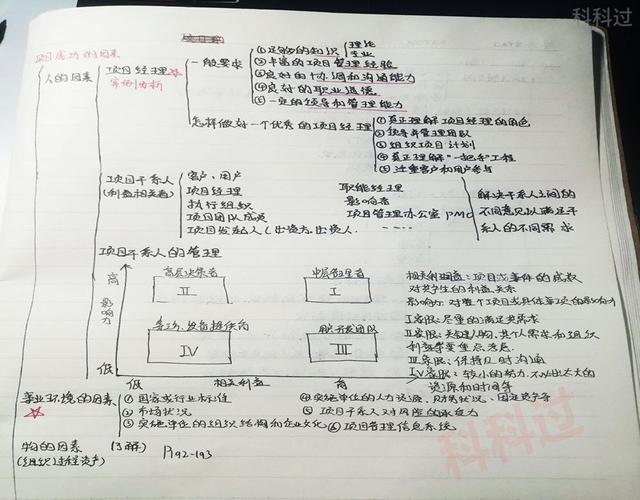 科科过
项目成功的因素
人的因素
项目经理 ☆
案例分析
一般要求
①足够的知识 理论 专业
②丰富的项目管理经验
③良好的协调和沟通能力
④良好的职业道德
⑤一定的领导和管理能力
怎样做好一个优秀的项目经理
①真正理解项目经理的角色
②领导并管理团队
③组织项目计划
④真正理解“一把手”工程
⑤注重客户和用户参与
项目干系人
(利益相关者)
客户、用户
项目经理
执行组织
项目团队成员
项目发起人(出资方、出资人
职能经理
影响者
项目管理办公室 PMO
……
解决干系人之间的
不同意见以满足干
系人的不同需求
项目干系人的管理
高
影响力
低
高层决策者
II
中层管理者
I
设备提供商
IV
开发团队
III
低
相关利益
高
相关利益：项目或事件的成败
对其产生的利益关系
影响力：对整个项目或具体事项的影响力
I 客服：尽量的满足其需求
II 客服：关键人物，其个人需求和组织
利益要重点考虑
III 客服：保持及时沟通
IV 客服：较小的努力，不必出太大的
资源和时间等
事业环境的因素
☆
①国家或行业标准
②市场状况
③实施单位的组织结构和企业文化
④实施单位的人力资源、财务状况、固定资产等
⑤项目干系人对风险的承受力
⑥项目管理信息系统
物的因素 (了解) P192-193
(组织)过程资产)
科科过